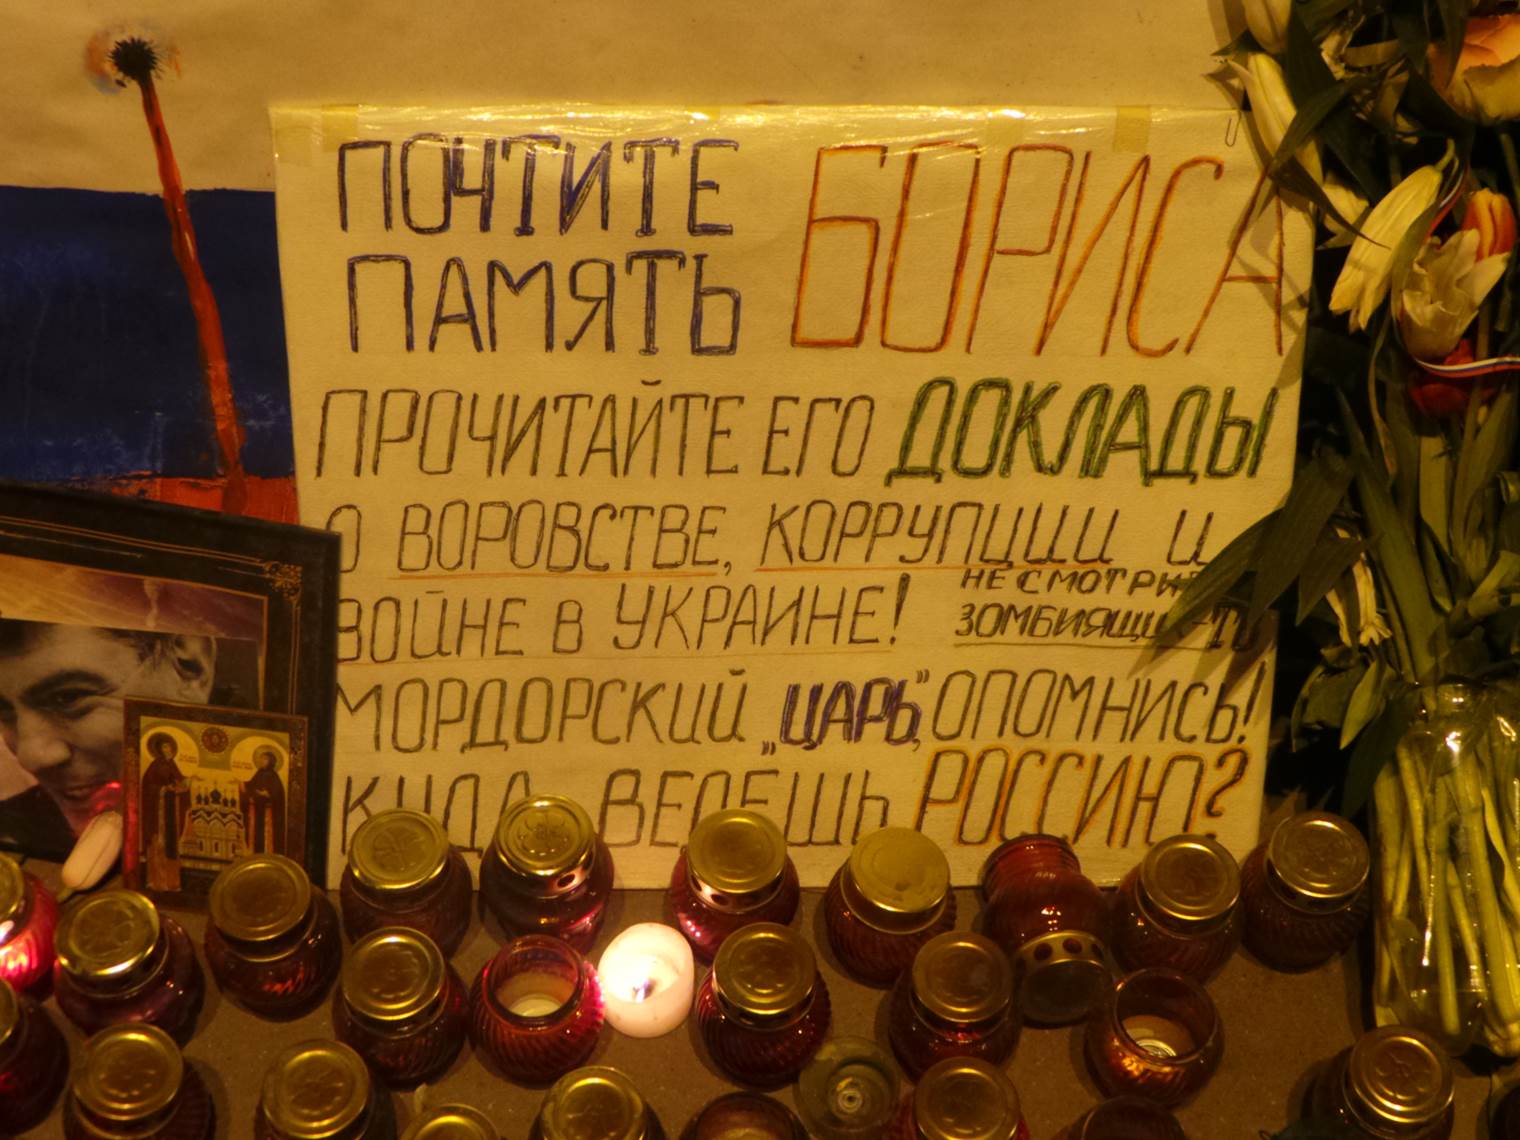 ПОЧТИТЕ
ПАМЯТЬ БОРИСА
ПРОЧИТАЙТЕ ЕГО ДОКЛАДЫ
О ВОРОВСТВЕ, КОРРУПЦИИ И
ВОЙНЕ В УКРАИНЕ!
ЗОМБИЯЩИК-ТО
МОРДОРСКИЙ „ЦАРЬ”, ОПОМНИСЬ!
КУДА ВЕДЁШЬ РОССИЮ?